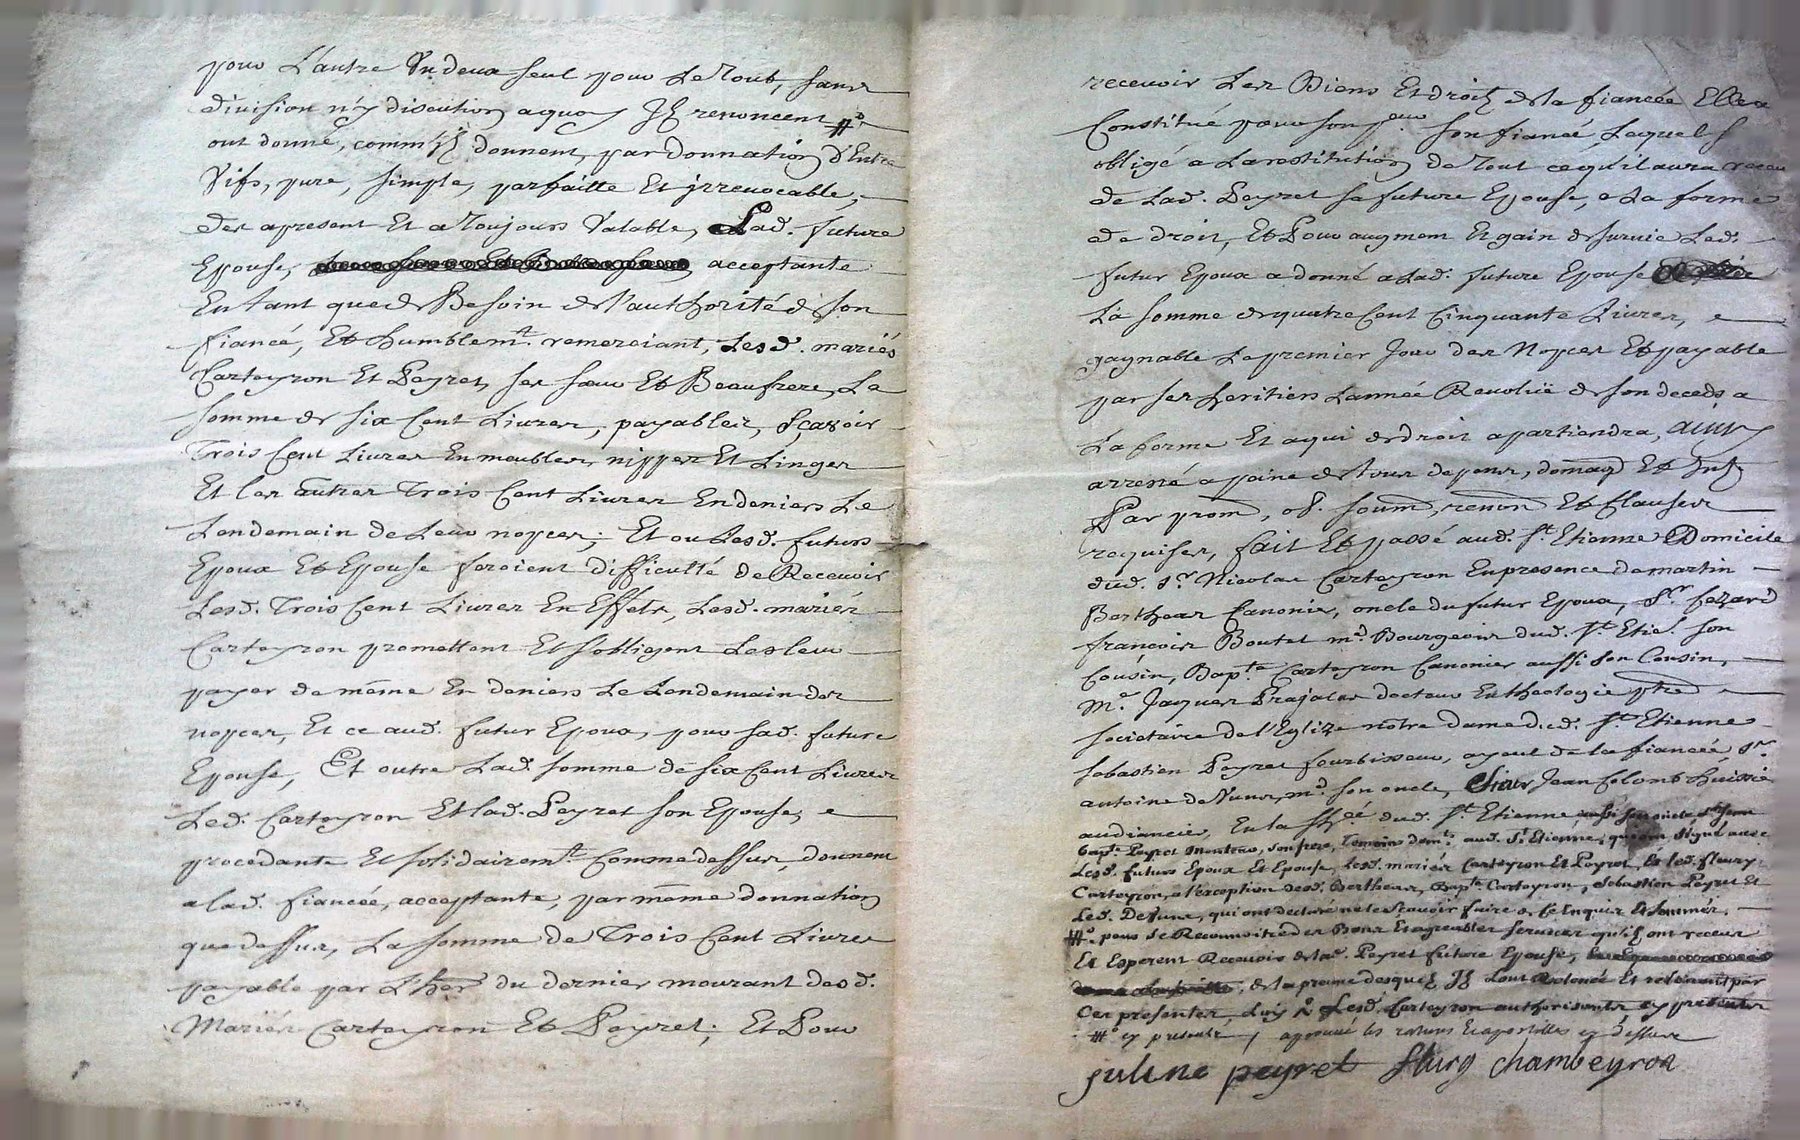 pour L'autre Un deux seul pour Le Tout, sans
division n'y discution a quoy Ilz renoncent #°
ont donné, comm'ilz donnent, par donnation d'Entre
Vifs, pure, simple, parfaitte Et jrrevocable,
des apresent Et a Toujours Valable, Lad. future
Epouse, acceptante
En tant que de Besoin de l'authorité de son
fiancé, Et humblemt. remerciant, Lesd. mariés
Carteyron Et Peyret, ses sœur Et Beaufrere, La
somme de six Cent Livres, payables, sçavoir
Trois Cent Livres En meubles, nippes Et Linges
Et les autres Trois Cent Livres En deniers Le
Lendemain de Leur nopces; Et ou Lesd. futurs
Epoux Et Epouse feroient difficulté de Recevoir
Lesd. Trois Cent Livres En Effets, Lesd. mariés
Carteyron promettent Et s'obligent Les leur
payer de même En deniers Le Lendemain des
nopces, Et ce aud. futur Epoux, pour sad. future
Epouse, Et outre Lad. somme de six Cent Livres
Led. Carteyron Et lad. Peyret son Epouse,
procedants Et solidairemt. Comme dessus, donnent
a lad. fiancée, acceptante, par même donnation
que dessus, La somme de Trois Cent Livres
payable par L'her. du dernier mourant desd.
Mariés Carteyron Et Peyret; Et Pour
recevoir Les Biens Et droitz de la fiancée Elle a
Constitué pour son pour. son fiancé Lequel s
obligé a La restitution de Tout ce qu'il aura receu
de Lad. Peyret sa future Epouse, a La forme
de droit, Et Pour augment Et gain de survie Led.
futur Epoux a donné a Lad. future Epouse
La somme de quatre Cent Cinquante Livres,
gaignable Le premier Jour des Nopces Et payable
par ses heritiers L'année Revoluë de son deceds a
La forme Et a qui de droit apartiendra, ainsy
arresté a paine de tous depens, domag Et Intz
Par prom, ob. soum, renon Et Clauses
requises, fait Et passé aud. St. Etienne Domicile
dud. Sr. Nicolas Carteyron En presence de martin
Bertheas Canonier, oncle du futur Epoux, Sr. Cezard
francois Boutet md. Bourgeois dud. St. Etie. son
Cousin, Bapte. Carteyron Canonier aussi son Cousin,
Me. Jaques Prajalas docteur En theologie ptre
societaire de l'Eglize nôtre dame dud. St. Etienne
sebastien Peyret fourbisseur, ayeul de la fiancée, Sr.
antoine de Vuns, md. son oncle, Jean Colomb huissier
audiancier, En la dud. St. Etienne aussi son oncle, Jean
Bapt. Peyret Monteur, son frere, Temoins dem. aud. St. Etienne, qui ont signé avec
Lesd. futurs Epoux Et Epouse, Lesd. mariés Carteyron Et Peyret, Et led. fleury
Carteyron, a l'exception desd. Bertheas, Bapte. Carteyron, Sebastien Peyret Et
Led. DeVuns, qui ont declaré ne le sçavoir faire de Ce Enquis Et sommés.
#° pour se Reconnoitre des Bons Et agreables services qu'ilz ont receus
Et Esperent Recevoir de lad. Peyret future Epouse,
, de la preuve desquelz Ilz L'ont Relevée Et relevent par
Ces presentes, Lesd. Carteyron authorisants cy presents
#° cy presents, aprouvé les ratures Et apostilles cy dessus
juline peyret flury chambeyron